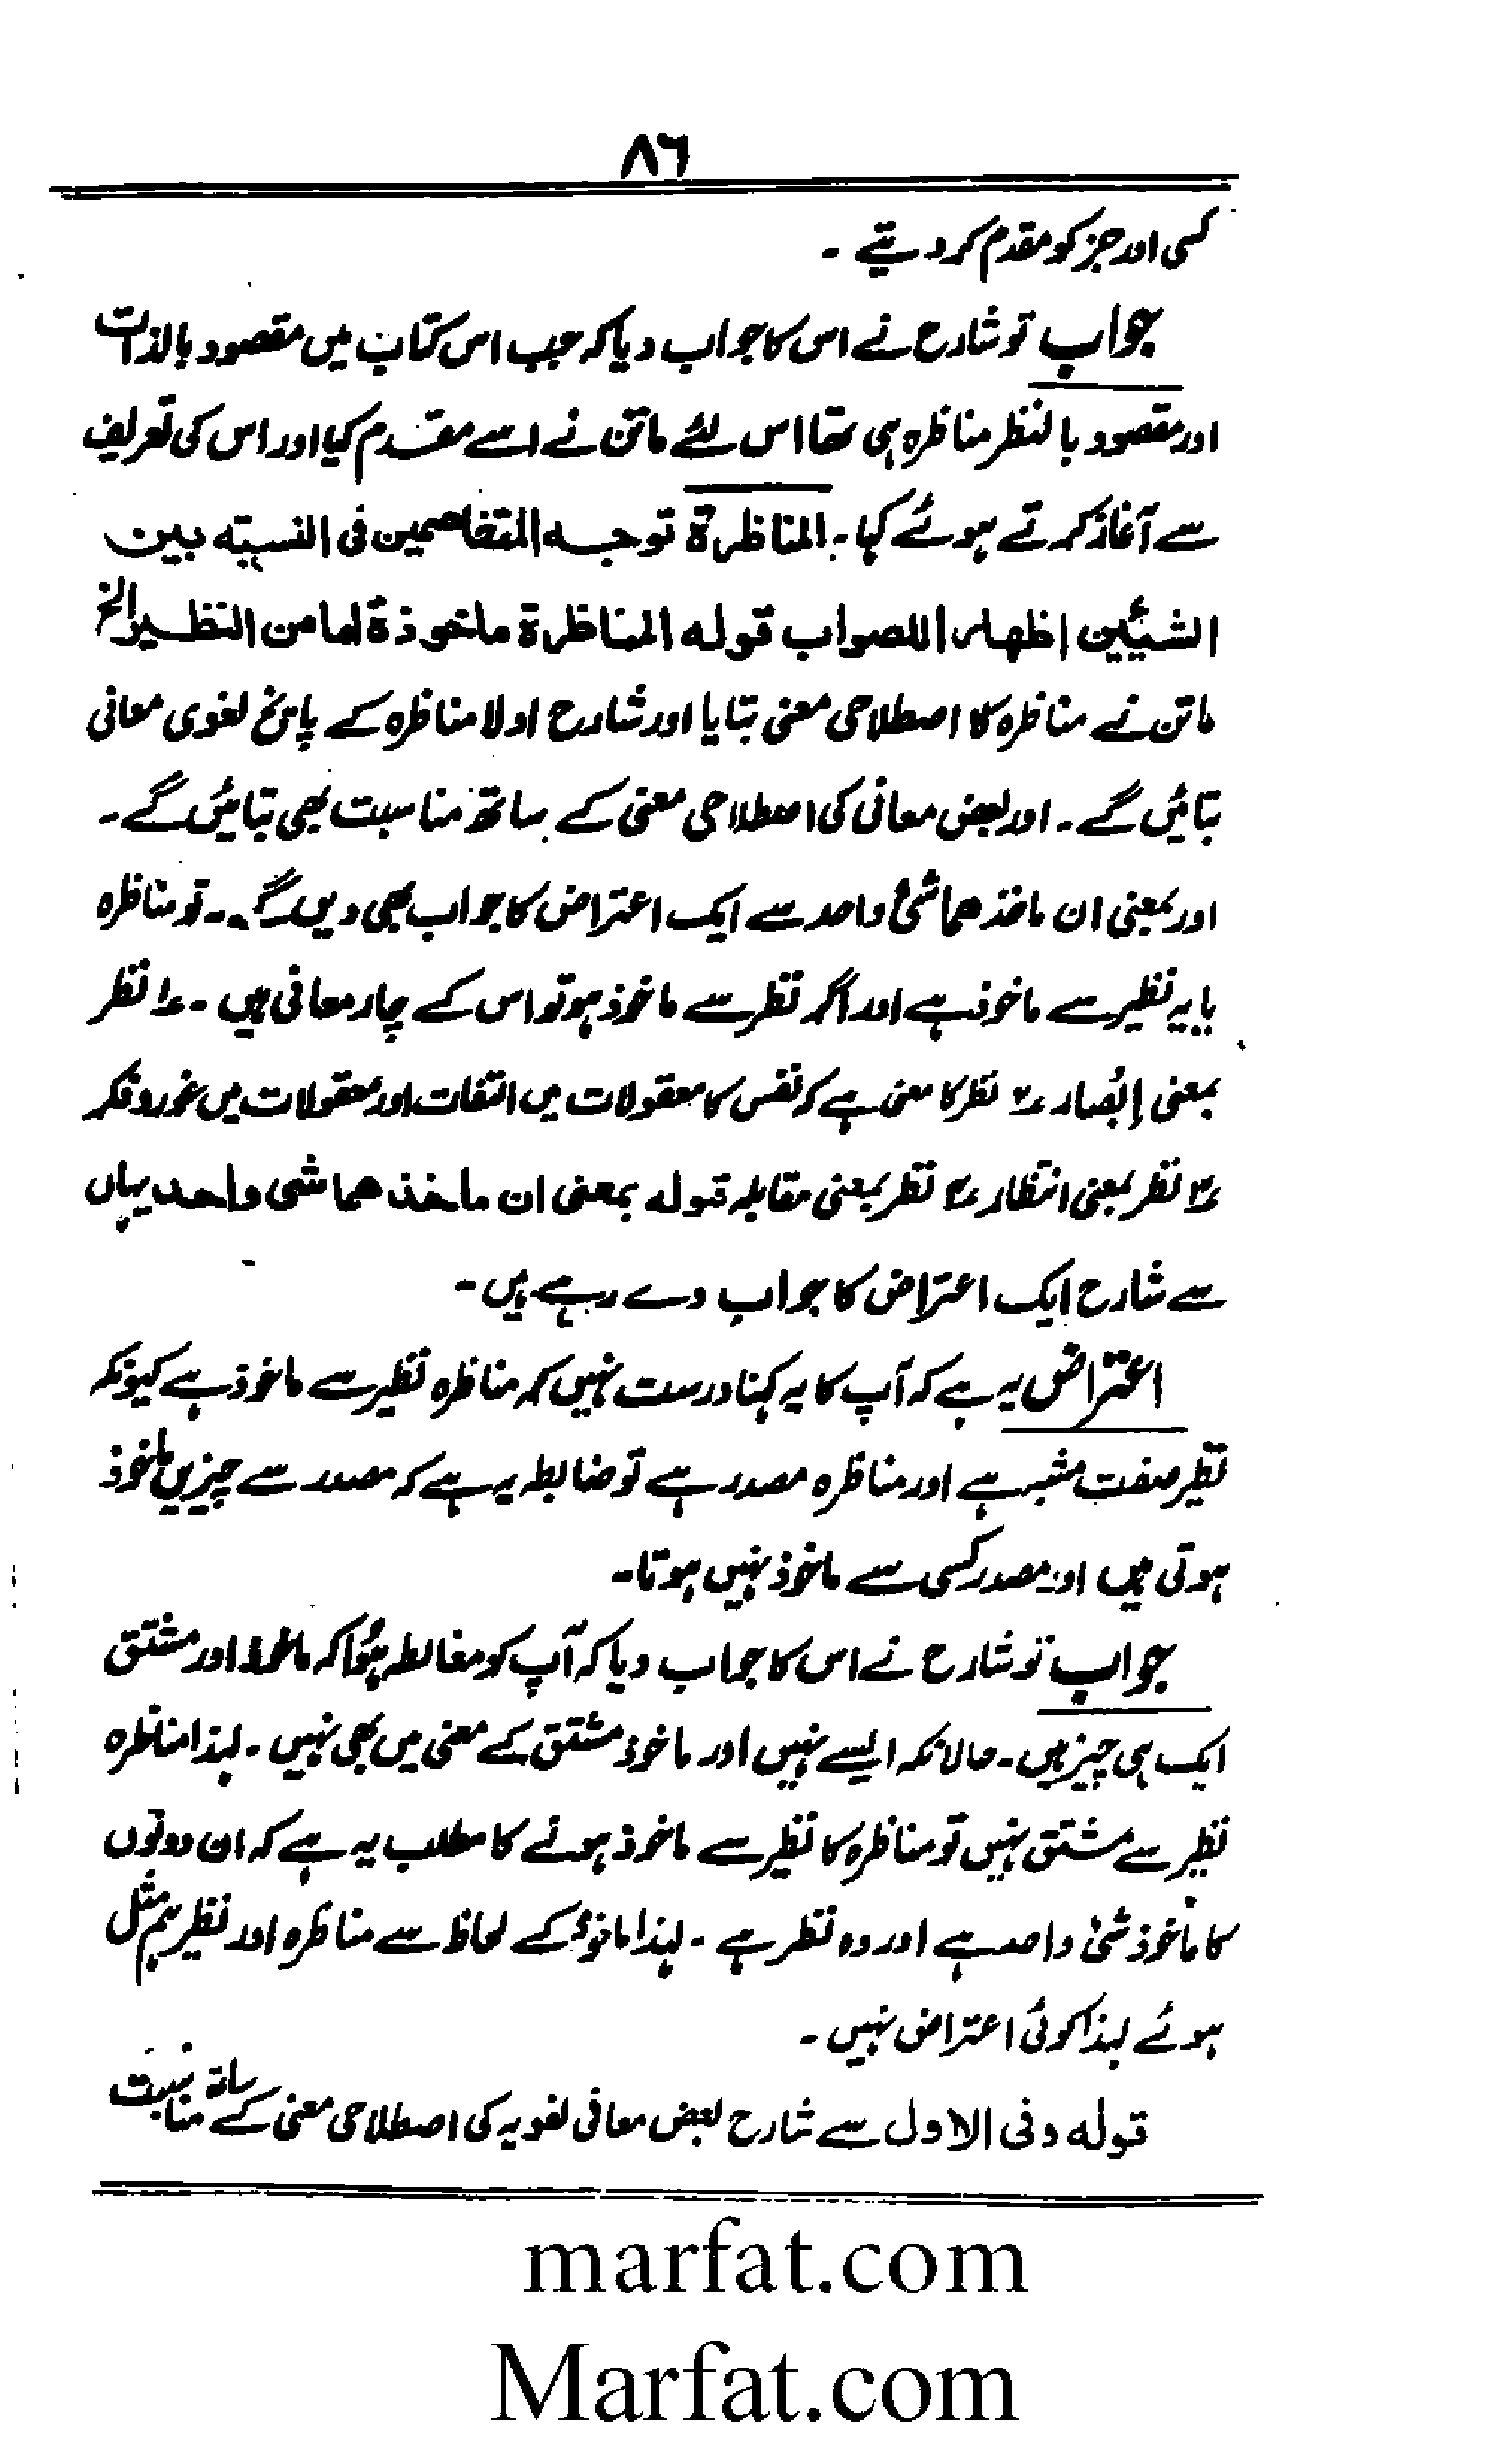 ٨٦
کسی اور جز کو مقدم کر دیتے ۔
جواب تو شارح نے اس کا جواب دیا کہ جب اس کتاب میں مقصود بالذات
اور مقصود بالنظر مناظرہ ہی تھا اس لئے ماتن نے اسے مقدم کیا اور اس کی تعریف
سے آغاز کرتے ہوئے کہا ۔ المناظرة توجه المتخاصمین فی النسبته بین
الشیئین اظهارا للصواب قوله المناظرة ماخوذة اما من النظیر الخ
ماتن نے مناظرہ کا اصطلاحی معنی بتایا اور شارح اولا مناظرہ کے پانچ لغوی معانی
بتائیں گے ۔ اور بعض معانی کی اصطلاحی معنی کے ساتھ مناسبت بھی بتائیں گے ۔
اور بمعنی ان ماخذ هما شئ واحد سے ایک اعتراض کا جواب بھی دیں گے ۔ تو مناظرہ
یا یہ نظیر سے ماخوذ ہے اور اگر نظر سے ماخوذ ہو تو اس کے چار معانی ہیں ۔ ۱؎ نظر
بمعنی اِبْصار ۲؎ نظر کا معنی ہے کہ نفس کا معقولات میں التفات اور معقولات میں غور و فکر
۳؎ نظر بمعنی انتظار ۴؎ نظر بمعنی مقابلہ قوله بمعنی ان ماخذ هما شی واحد یہاں
سے شارح ایک اعتراض کا جواب دے رہے ہیں ۔
اعتراض یہ ہے کہ آپ کا یہ کہنا درست نہیں کہ مناظرہ نظیر سے ماخوذ ہے کیونکہ
نظیر صفت مشبہ ہے اور مناظرہ مصدر ہے تو ضابطہ یہ ہے کہ مصدر سے چیزیں ماخوذ
ہوتی ہیں اور مصدر کسی سے ماخوذ نہیں ہوتا ۔
جواب تو شارح نے اس کا جواب دیا کہ آپ کو مغالطہ ہُوا کہ ماخوذ اور مشتق
ایک ہی چیز ہیں ۔ حالانکہ ایسے نہیں اور ماخوذ مشتق کے معنی میں بھی نہیں ۔ لہذا مناظرہ
نظیر سے مشتق نہیں تو مناظرہ کا نظیر سے ماخوذ ہونے کا مطلب یہ ہے کہ ان دونوں
کا ماخوذ شئ واحد ہے اور وہ نظر ہے ۔ لہذا ماخوذ کے لحاظ سے مناظرہ اور نظیر ہم مثل
ہوئے لہذا کوئی اعتراض نہیں ۔
قوله وفی الاول سے شارح بعض معانی لغویہ کی اصطلاحی معنی کے ساتھ مناسبت
marfat.com
Marfat.com